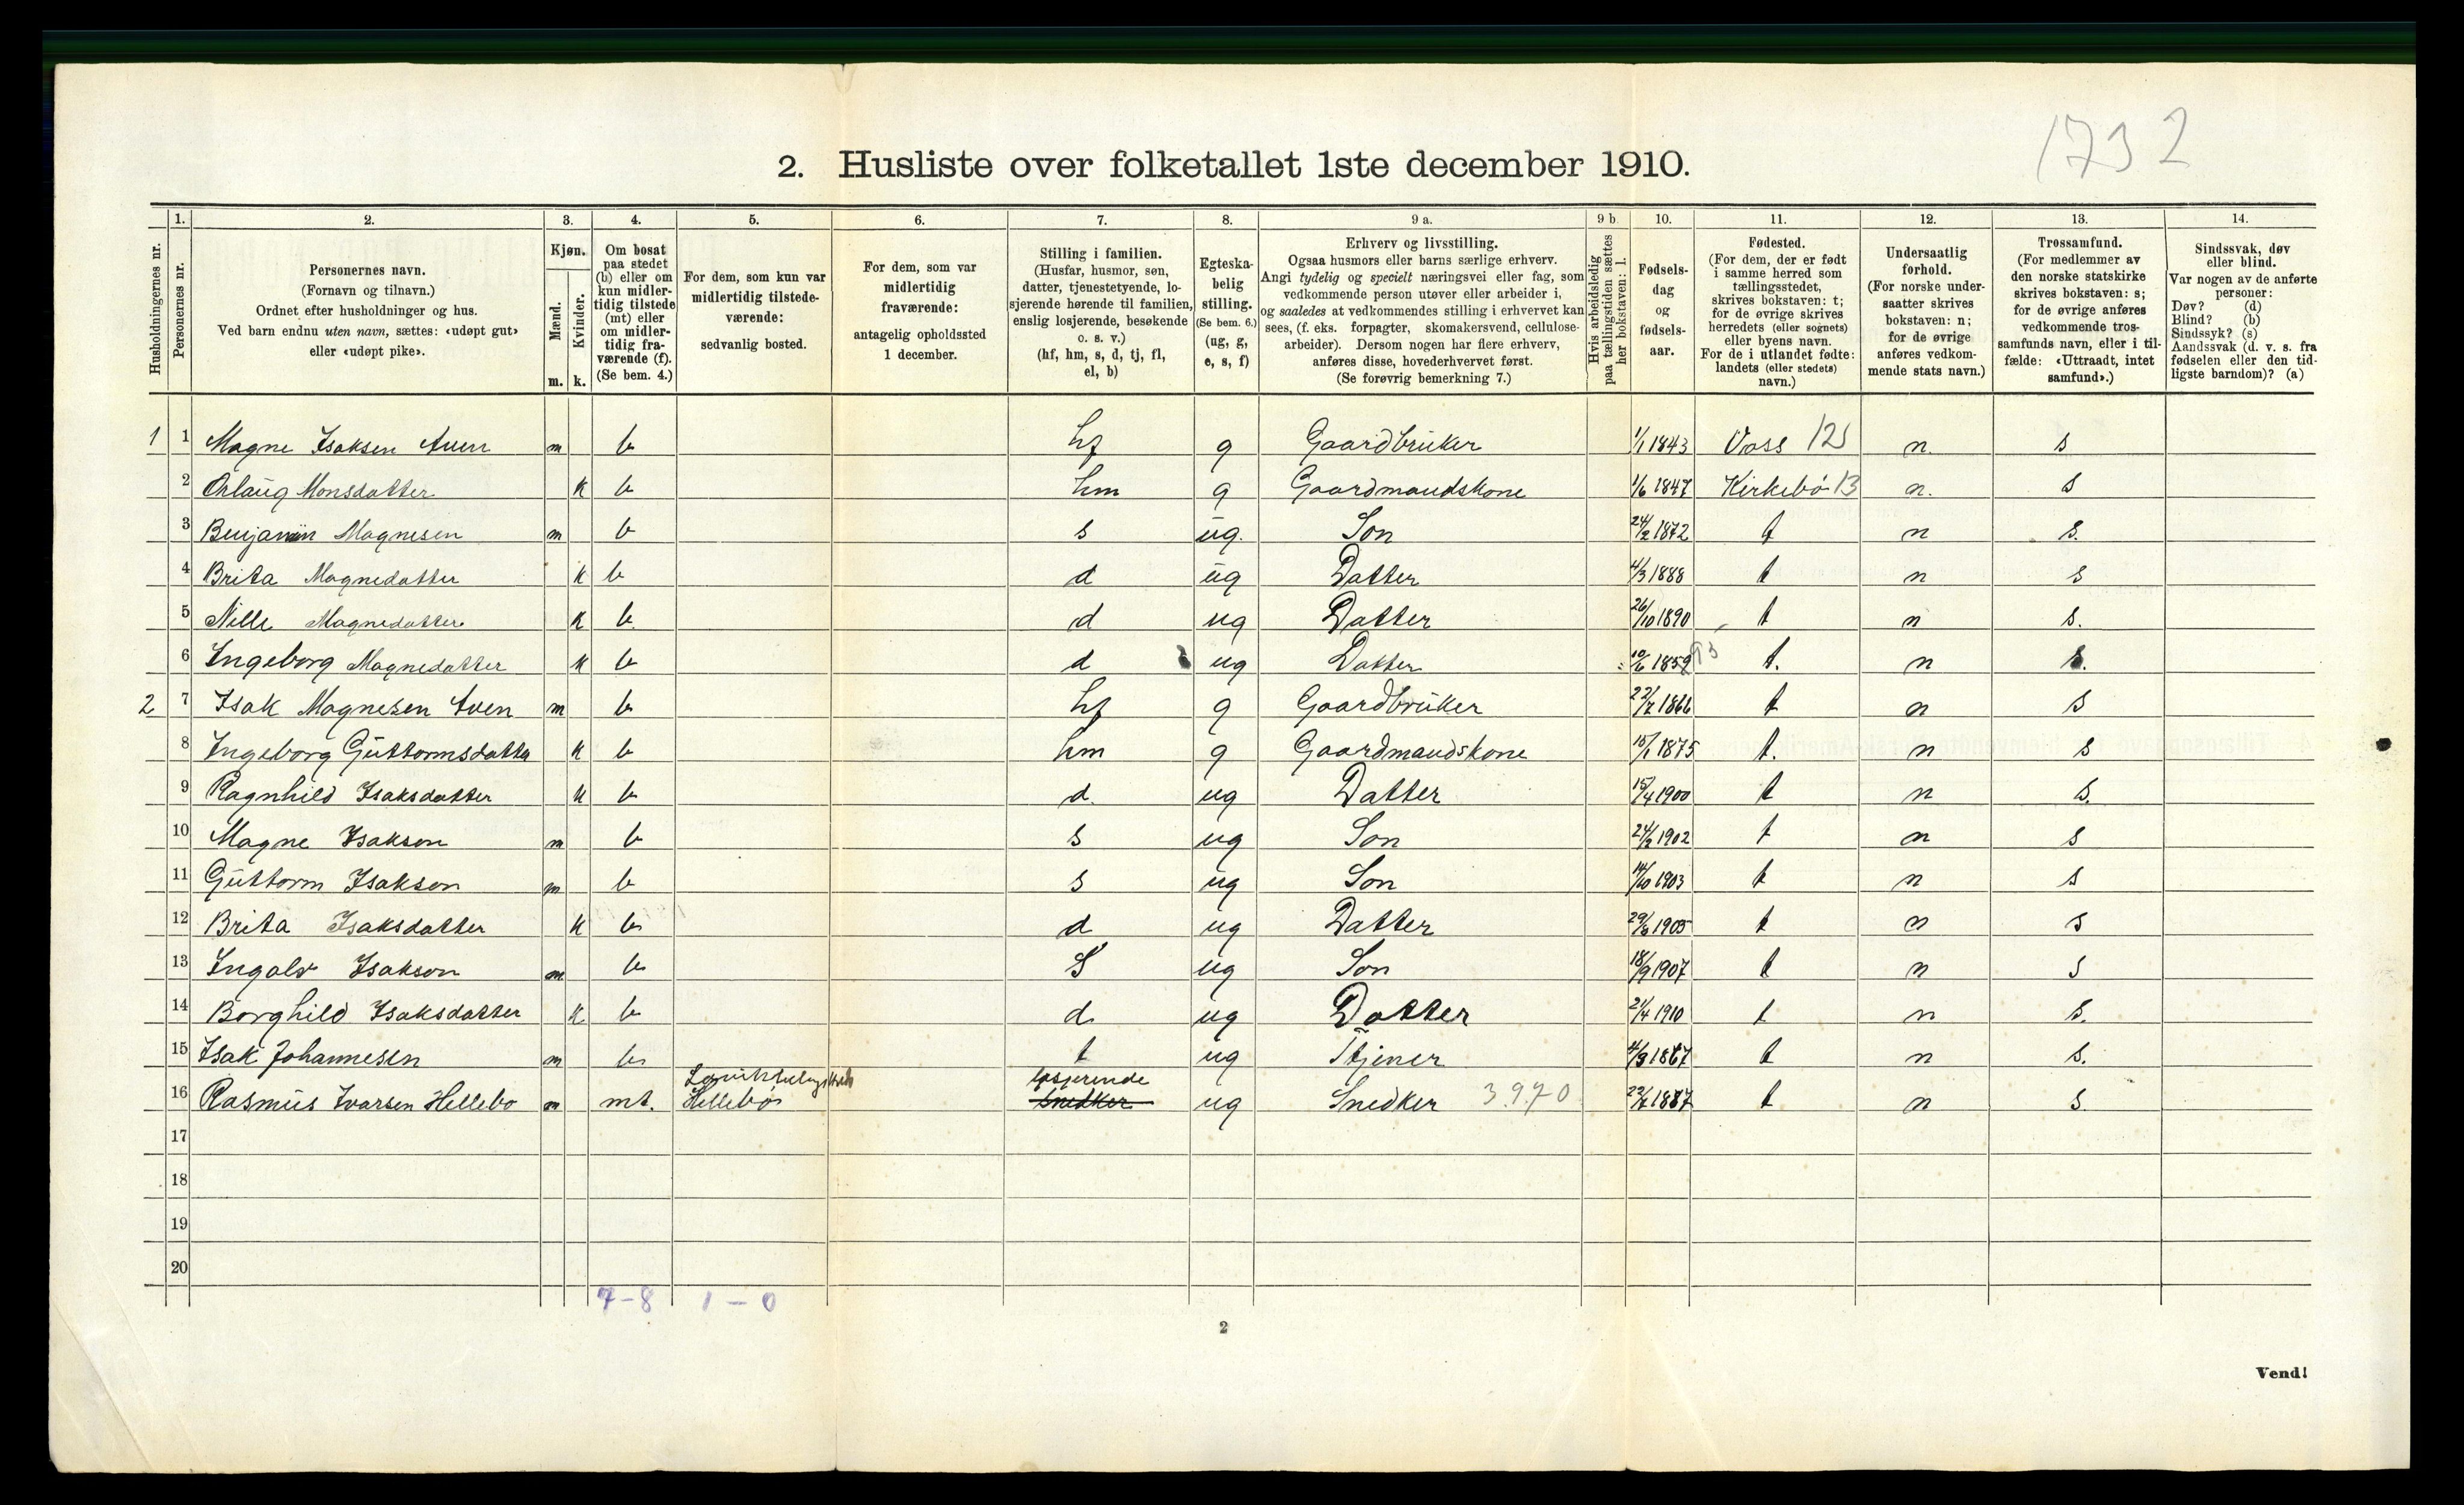 1732
2. Husliste over folketallet 1ste december 1910.
Husholdningernes nr.
1. Personernes nr.
2. Personernes navn. (Fornavn og tilnavn.) Ordnet efter husholdninger og hus. Ved barn endnu uten navn, sættes: «udøpt gut» eller «udøpt pike».
3. Kjøn. Mænd. m. Kvinder. k.
4. Om bosat paa stedet (b) eller om kun midlertidig tilstede (mt) eller om midlertidig fraværende (f). (Se bem. 4.)
5. For dem, som kun var midlertidig tilstedeværende: sedvanlig bosted.
6. For dem, som var midlertidig fraværende: antagelig opholdssted 1 december.
7. Stilling i familien. (Husfar, husmor, søn, datter, tjenestetyende, losjerende hørende til familien, enslig losjerende, besøkende o. s. v.) (hf, hm, s, d, tj, fl, el, b)
8. Egteskabelig stilling. (Se bem. 6.) (ug, g, e, s, f)
9 a. Erhverv og livsstilling. Ogsaa husmors eller barns særlige erhverv. Angi tydelig og specielt næringsvei eller fag, som vedkommende person utøver eller arbeider i, og saaledes at vedkommendes stilling i erhvervet kan sees, (f. eks. forpagter, skomakersvend, cellulosearbeider). Dersom nogen har flere erhverv, anføres disse, hovederhvervet først. (Se forøvrig bemerkning 7.)
9 b. Hvis arbeidsledig paa tællingstiden sættes her bokstaven: l.
10. Fødselsdag og fødselsaar.
11. Fødested. (For dem, der er født i samme herred som tællingsstedet, skrives bokstaven: t; for de øvrige skrives herredets (eller sognets) eller byens navn. For de i utlandet fødte: landets (eller stedets) navn.)
12. Undersaatlig forhold. (For norske undersaatter skrives bokstaven: n; for de øvrige anføres vedkommende stats navn.)
13. Trossamfund. (For medlemmer av den norske statskirke skrives bokstaven: s; for de øvrige anføres vedkommende trossamfunds navn, eller i tilfælde: «Uttraadt, intet samfund».)
14. Sindssvak, døv eller blind. Var nogen av de anførte personer: Døv? (d) Blind? (b) Sindssyk? (s) Aandssvak (d. v. s. fra fødselen eller den tidligste barndom)? (a)
1 1 Magne Isaksen Aven m b hf g Gaardbruker 1/1 1843 Voss 125 n. s
2 Orlaug Monsdatter k b hm g Gaardmandskone 1/6 1847 Kirkebø 13 n. s
3 Benjamin Magnesen m b s ug. Son 24/2 1872 t n s.
4 Brita Magnedatter k b d ug Datter 4/3 1888 t n s
5 Nille Magnedatter k b d ug Datter 26/10 1890 t n s.
6 Ingeborg Magnedatter k b d ug Datter 10/6 1859 93 t. n s.
2 7 Isak Magnesen Aven m b hf g Gaardbruker 22/7 1866 t n s
8 Ingeborg Guttormsdatter k b hm g Gaardmandskone 15/1 1875 t. n s
9 Ragnhild Isaksdatter k b d. ug Datter 15/4 1900 t n s.
10 Magne Isakson m b s ug Son 24/2 1902 t n s
11 Guttorm Isakson m b s ug Son 14/10 1903 t n s
12 Brita Isaksdatter k b d ug Datter 29/6 1905 t n s
13 Ingolv Isakson m b S ug Son 18/9 1907 t n s
14 Borghild Isaksdatter k b d. ug Datter 21/4 1910 t n s.
15 Isak Johannesen m b t ug Tjener 4/3 1867 t n s.
16 Rasmus Ivarsen Hellebo m mt. Hellebø losjerende snedker ug Snedker 3.9.70 22/7 1887 t n s.
17
18
19
20
7-8 1-0
2
Vend!